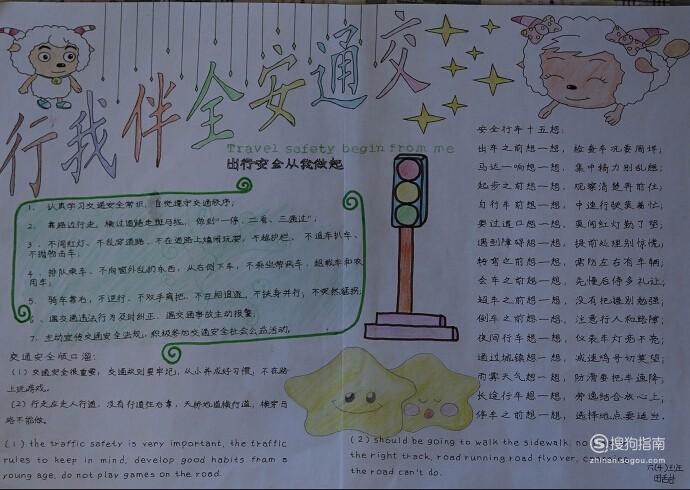 交通安全伴我行
Travel safety begin from me
出行安全从我做起
1、认真学习交通安全常识，自觉遵守交通秩序；
2、靠路边行走，横过道路走斑马线，做到"一停、二看、三通过"；
3、不闯红灯、不乱穿道路、不在道路上嬉闹玩耍、不越护栏、不追车扒车、
不抛物击车；
4、排队乘车、不向窗外乱扔东西，从右侧下车，不乘坐带病车、超载车和农
用车；
5、骑车靠右，不逆行、不双手离把、不互相追逐、不扶身并行；不突然猛拐；
6、遇交通违法行为及时纠正，遇交通事故主动报警；
7、主动宣传交通安全法规，积极参加交通安全社会公益活动。
交通安全顺口溜：
(1)交通安全很重要，交通规则要牢记，从小养成好习惯，不在路
上玩游戏。
(2)行走应走人行道，没有行道往右靠，天桥地道横行道，横穿马
路不能做。
(1) the traffic safety is very important, the traffic
rules to keep in mind, develop good habits fram a
young age, do not play games on the road.
(2) should be going to walk the sidewalk, no
the right track, road running road flyover,
the road can't do.
安全行车十五想：
出车之前想一想，检查车况要周详；
马达一响想一想，集中精力别乱想；
起步之前想一想，观察清楚再前往；
自行车前想一想，中速行驶莫着忙；
要过道口想一想，莫闯红灯勤了望；
遇到障碍想一想，提前处理别惊慌；
转弯之前想一想，需防左右有车辆；
会车之前想一想，先慢后停多礼让；
超车之前想一想，没有把握别勉强；
倒车之前想一想，注意行人和路障；
夜间行车想一想，仪表车灯亮不亮；
通过城镇想一想，减速鸣号切莫望；
雨雾天气想一想，防滑要把车速降；
长途行车想一想，劳逸结合放心上；
停车之前想一想，选择地点要适当.
六(4)班
搜狗指南
zhinan.sogou.com